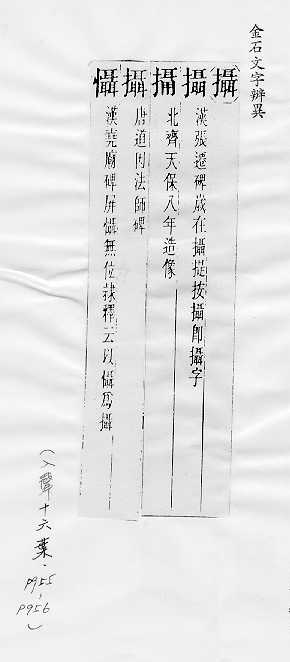 金石文字辨異
攝
攝 漢張遷碑歲在攝提按攝卽攝字
北齊天保八年造像
攝 唐道因法師碑
懾 漢堯廟碑屏懾無位隸釋云以懾爲攝
(入聲十六葉.
p955,
p956)